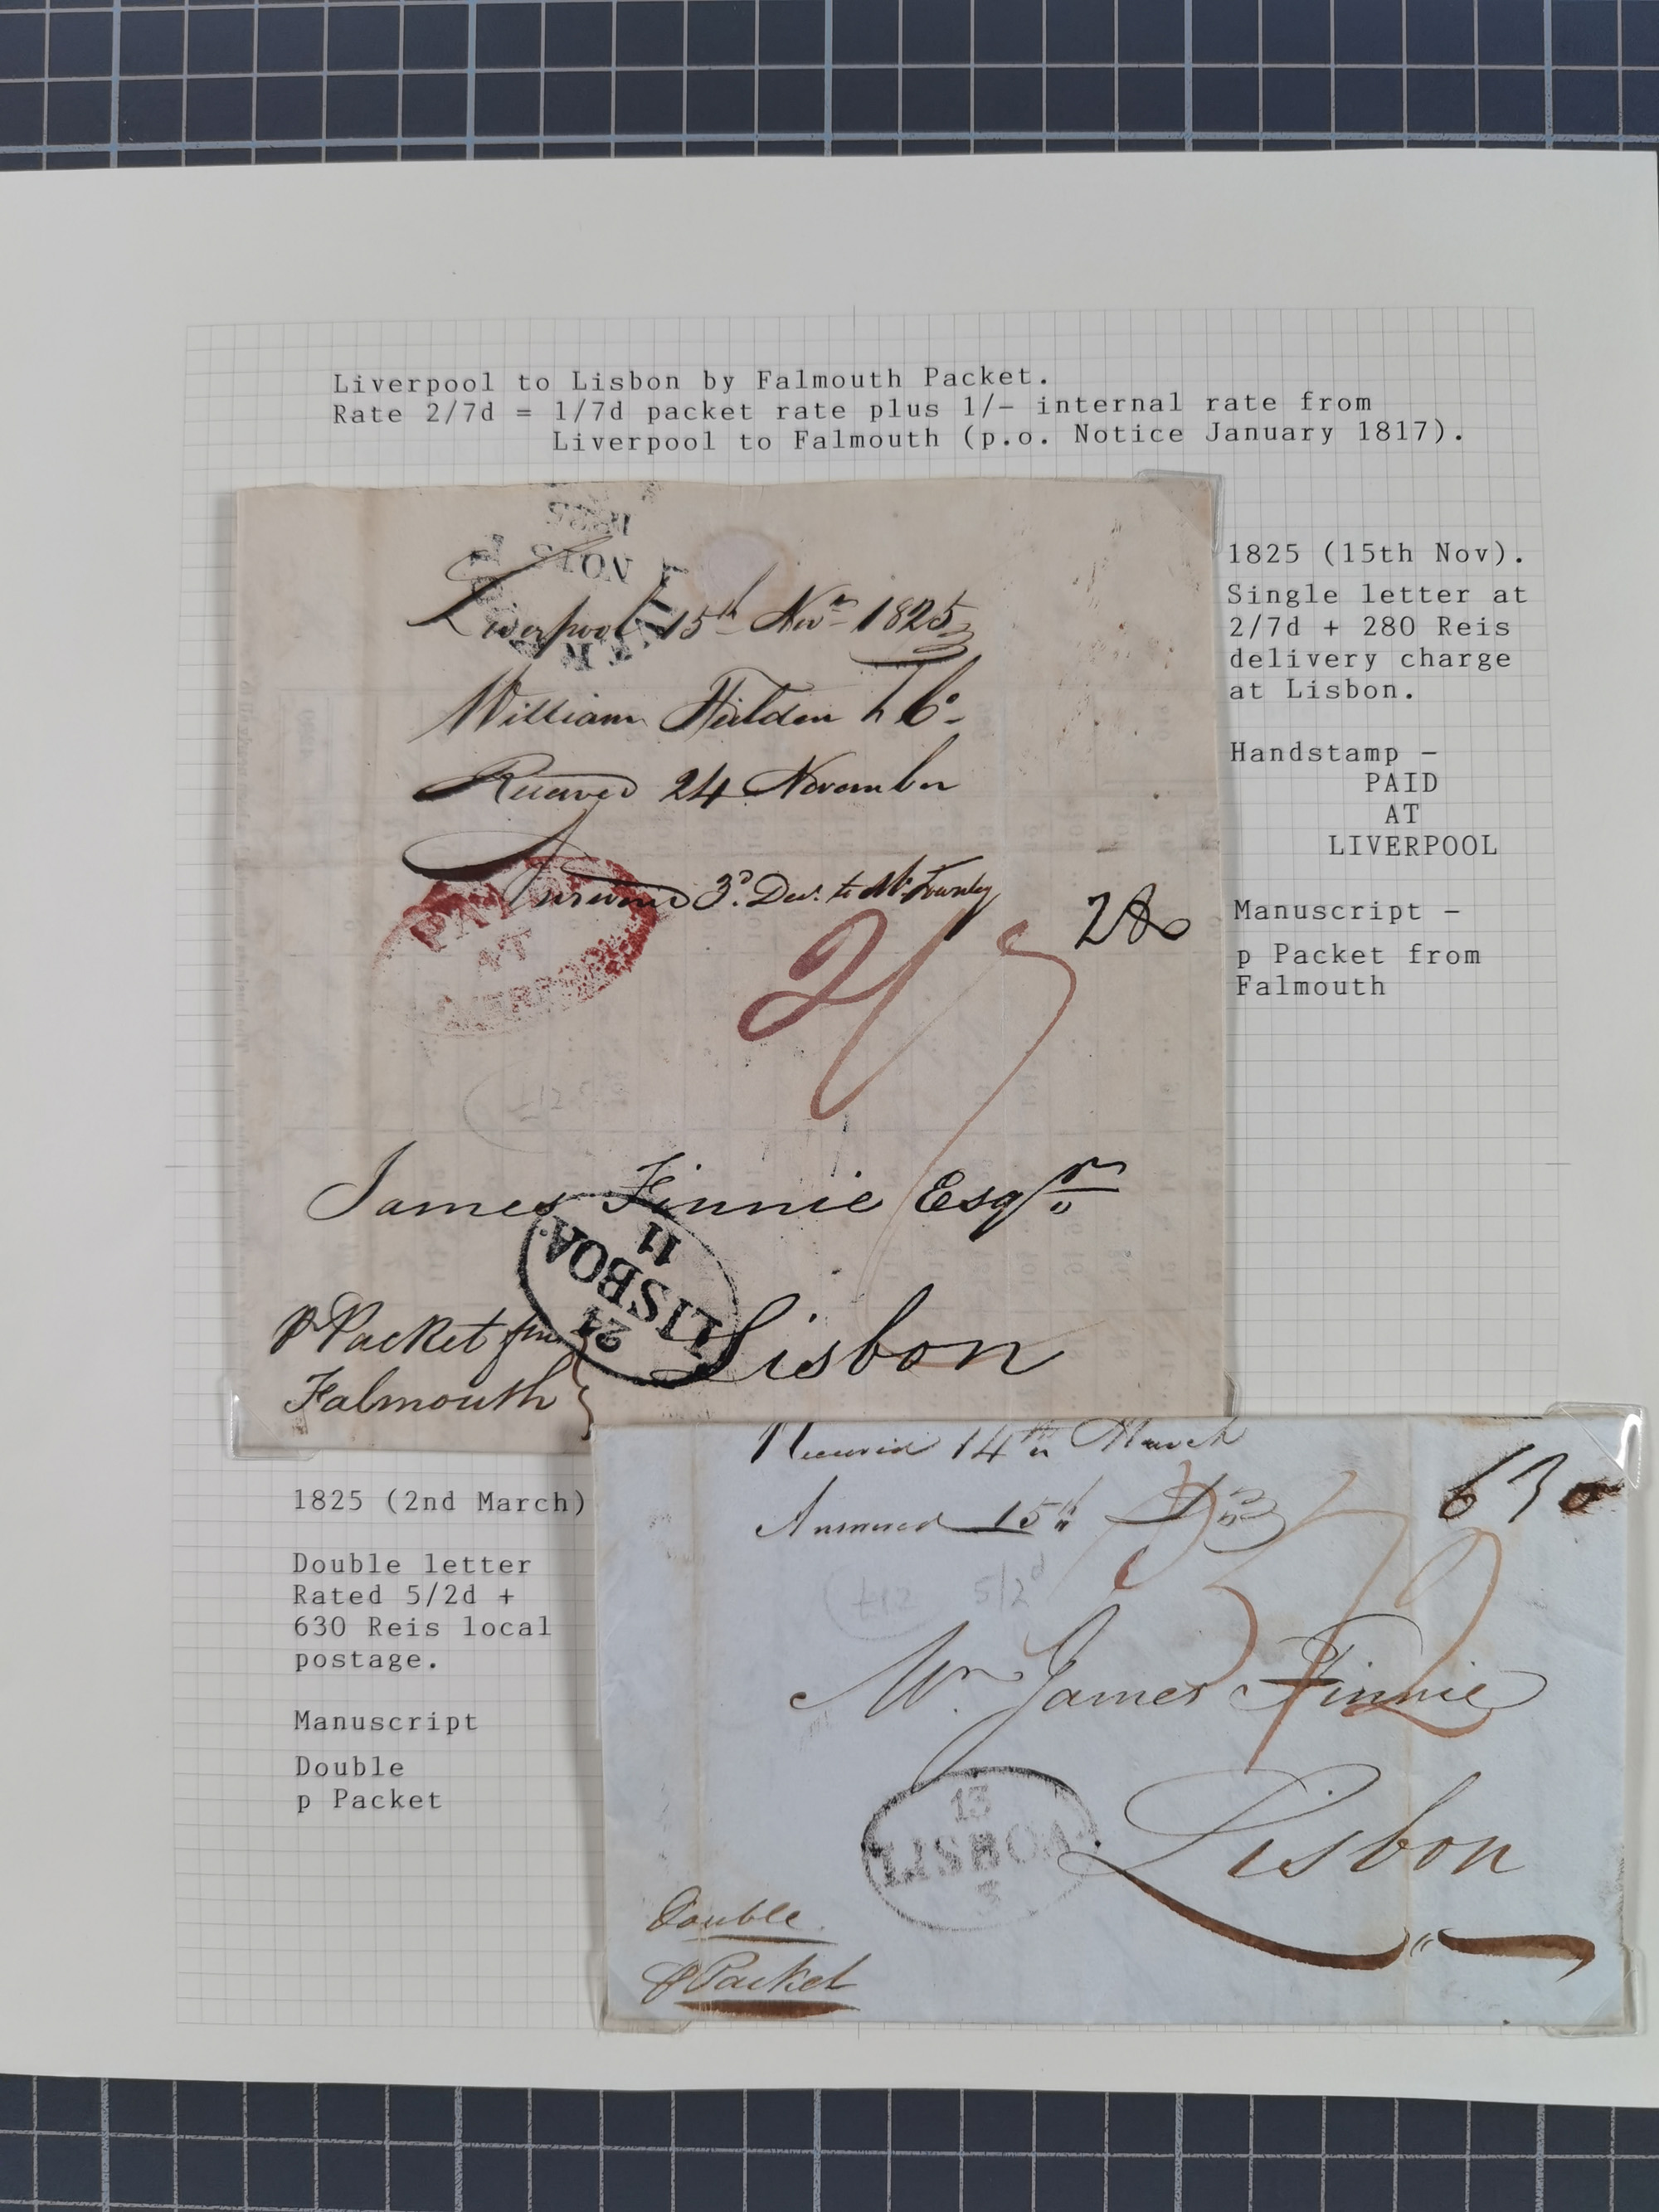 Liverpool to Lisbon by Falmouth Packet.
Rate 2/7d = 1/7d packet rate plus 1/- internal rate from
Liverpool to Falmouth (p.o. Notice January 1817).
1825
NO 15
Liverpool 15th Novr 1825
William & Co.
Received 24 November
Answered 3d. Decr. to Mr.
PAID
AT
LIVERPOOL
2/7
280
James Finnie Esqr.
LISBOA
24
11
Lisbon
p Packet from
Falmouth
1825 (15th Nov).
Single letter at
2/7d + 280 Reis
delivery charge
at Lisbon.
Handstamp -
PAID
AT
LIVERPOOL
Manuscript -
p Packet from
Falmouth
1825 (2nd March)
Double letter
Rated 5/2d +
630 Reis local
postage.
Manuscript
Double
p Packet
Received 14th March
Answered 15th Do
630
£12 5/2d
5/2
Mr. James Finnie
Lisbon
13
LISBOA
3
Double
p Packet